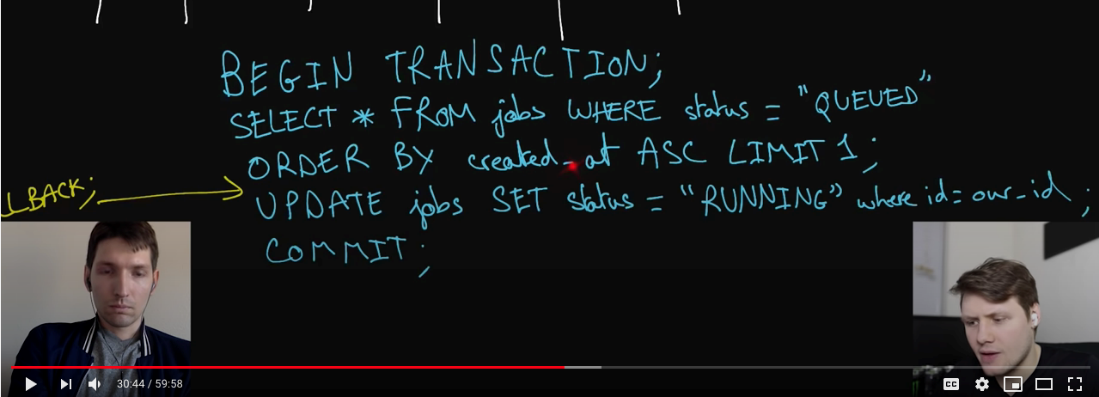 BEGIN TRANSACTION;
SELECT * FROM jobs WHERE status = "QUEUED"
ORDER BY created_at ASC LIMIT 1;
LBACK;
UPDATE jobs SET status = "RUNNING" where id = our-id ;
COMMIT;
30:44 / 59:58
CC